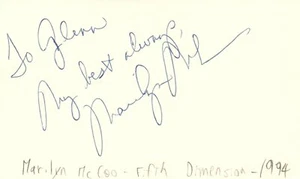 To Glenn
My best always,
Marilyn McCoo
Marilyn McCoo - Fifth Dimension - 1994